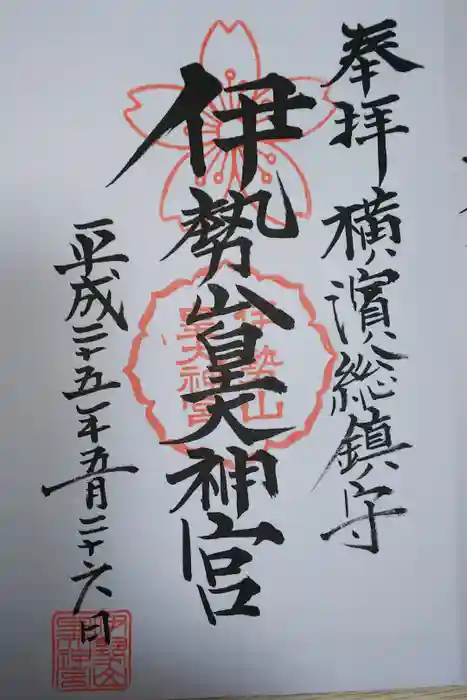 奉拝 横濱総鎮守
伊勢山皇大神宮
平成二十五年五月二十六日
伊勢山
皇大神宮
伊勢山
皇大神宮